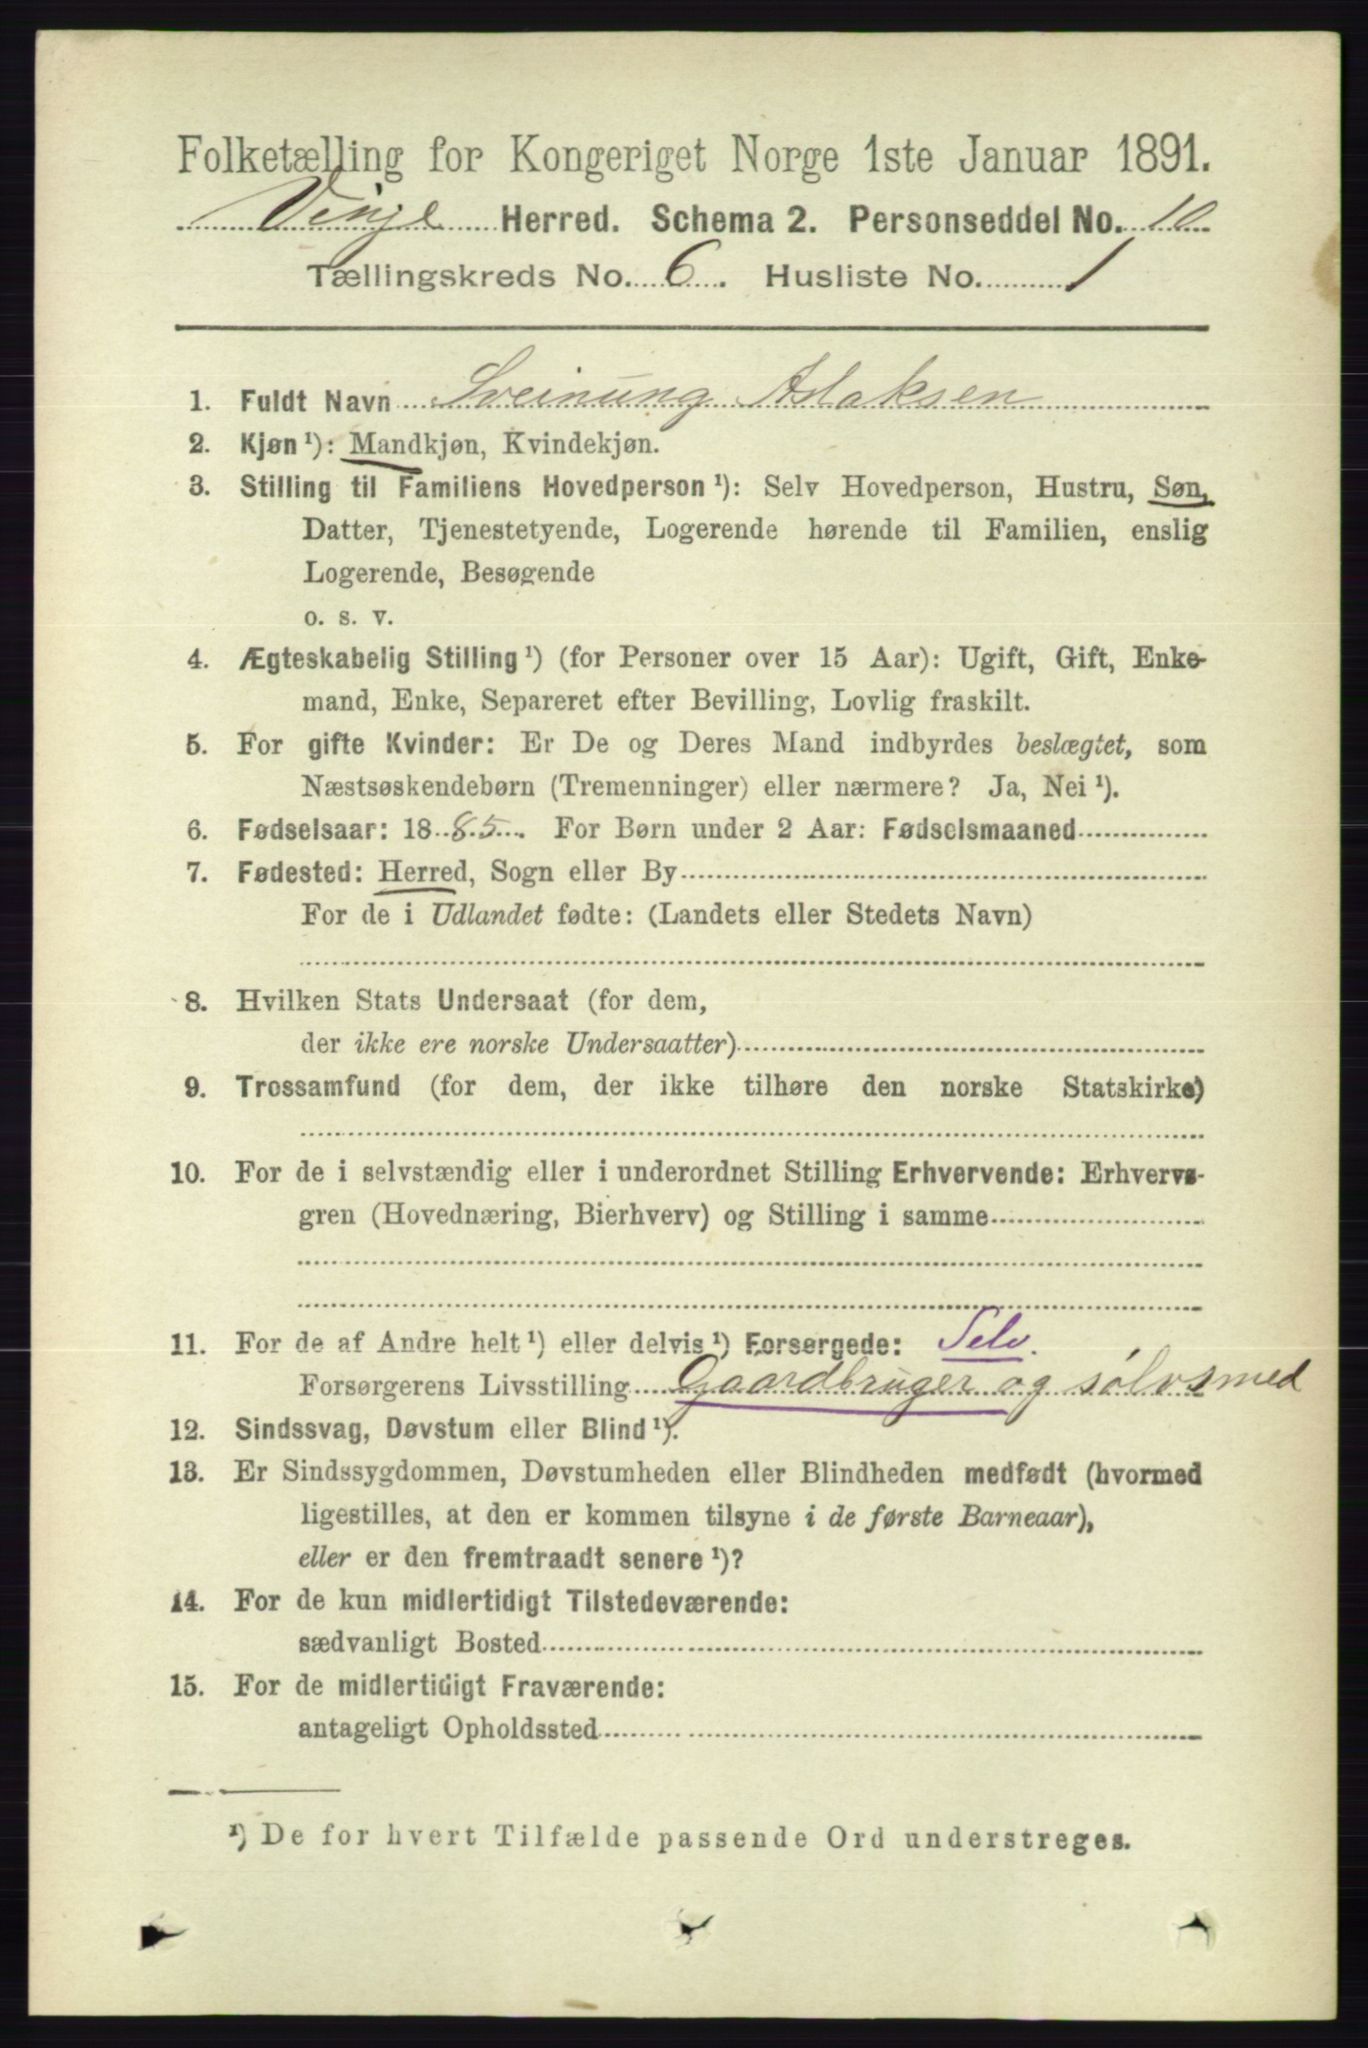 Folketælling for Kongeriget Norge 1ste Januar 1891.
Vinje Herred. Schema 2. Personseddel No. 10
Tællingskreds No. 6. Husliste No. 1
1. Fuldt Navn Sveinung Aslaksen
2. Kjøn¹): Mandkjøn, Kvindekjøn.
3. Stilling til Familiens Hovedperson¹): Selv Hovedperson, Hustru, Søn,
Datter, Tjenestetyende, Logerende hørende til Familien, enslig
Logerende, Besøgende
o. s. v.
4. Ægteskabelig Stilling¹) (for Personer over 15 Aar): Ugift, Gift, Enke-
mand, Enke, Separeret efter Bevilling, Lovlig fraskilt.
5. For gifte Kvinder: Er De og Deres Mand indbyrdes beslægtet, som
Næstsøskendebørn (Tremenninger) eller nærmere? Ja, Nei¹).
6. Fødselsaar: 1885. For Børn under 2 Aar: Fødselsmaaned
7. Fødested: Herred, Sogn eller By
For de i Udlandet fødte: (Landets eller Stedets Navn)
8. Hvilken Stats Undersaat (for dem,
der ikke ere norske Undersaatter)
9. Trossamfund (for dem, der ikke tilhøre den norske Statskirke)
10. For de i selvstændig eller i underordnet Stilling Erhvervende: Erhvervs-
gren (Hovednæring, Bierhverv) og Stilling i samme
11. For de af Andre helt¹) eller delvis¹) Forsørgede: Selv.
Forsørgerens Livsstilling Gaardbruger og sølvsmed
12. Sindssvag, Døvstum eller Blind¹).
13. Er Sindssygdommen, Døvstumheden eller Blindheden medfødt (hvormed
ligestilles, at den er kommen tilsyne i de første Barneaar),
eller er den fremtraadt senere¹)?
14. For de kun midlertidigt Tilstedeværende:
sædvanligt Bosted
15. For de midlertidigt Fraværende:
antageligt Opholdssted
¹) De for hvert Tilfælde passende Ord understreges.